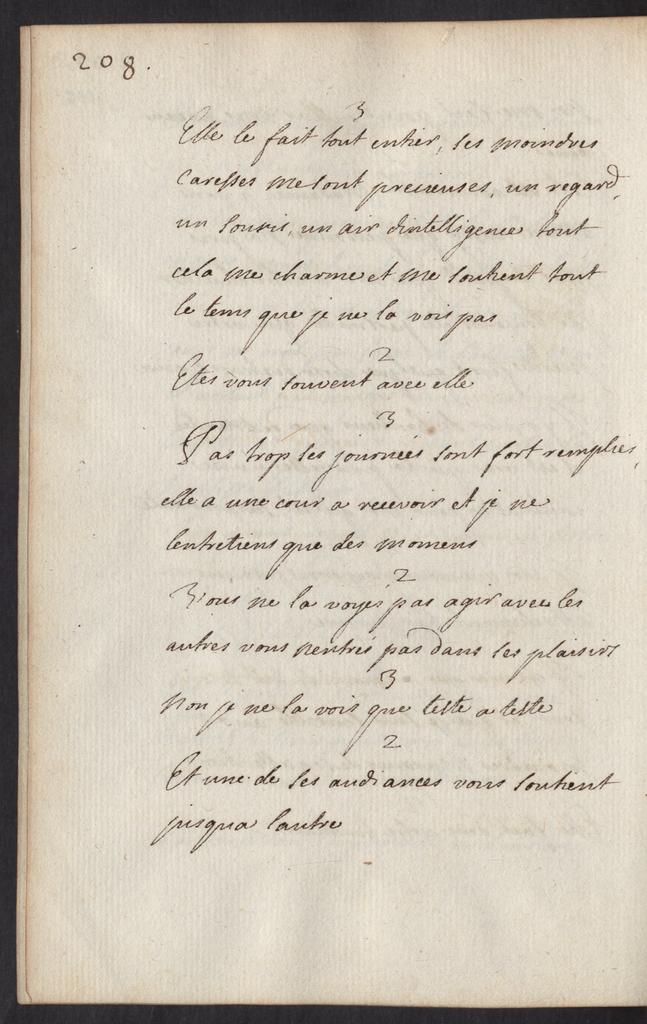 208.
3
Elle le fait tout entier, ses moindres
caresses me sont precieuses, un regard,
un souris, un air dintelligence tout
cela me charme et me soutient tout
le tems que je ne la vois pas
2
Etes vous souvent avec elle
3
Pas trop ses journées sont fort remplies,
elle a une cour a recevoir et je ne
lentretiens que des momens
2
Vous ne la voyés pas agir avec les
autres vous nentrés pas dans ses plaisirs
3
Non je ne la vois que teste a teste
2
Et une de ses audiances vous soutient
jusqua lautre